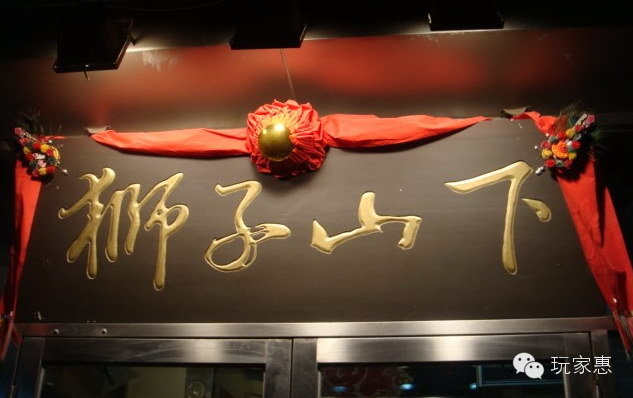 狮子山下
玩家惠